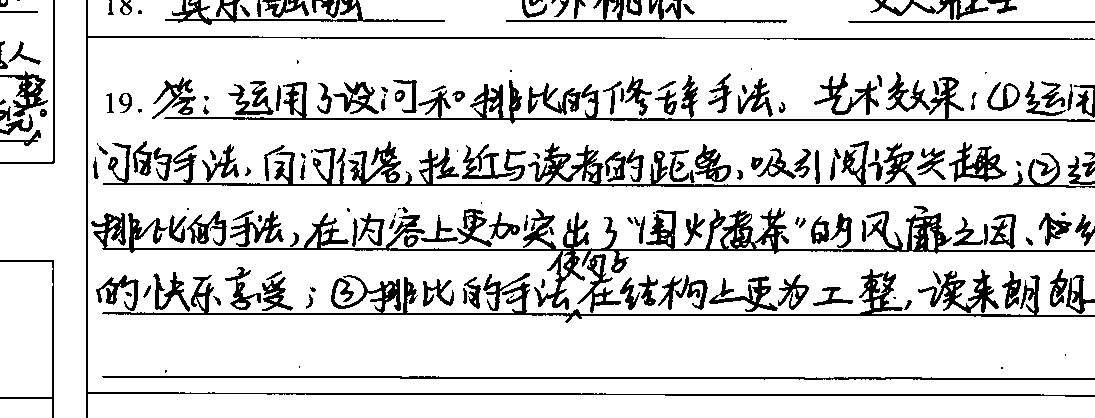 18. 其乐融融 世外桃源
19. 答：运用了设问和排比的修辞手法。艺术效果：①运用
问的手法，自问自答，拉近与读者的距离，吸引阅读兴趣；②运
排比的手法，在内容上更加突出了“围炉煮茶”的风靡之因、
使句子
的快乐享受；③排比的手法在结构上更为工整，读来朗朗
人
整